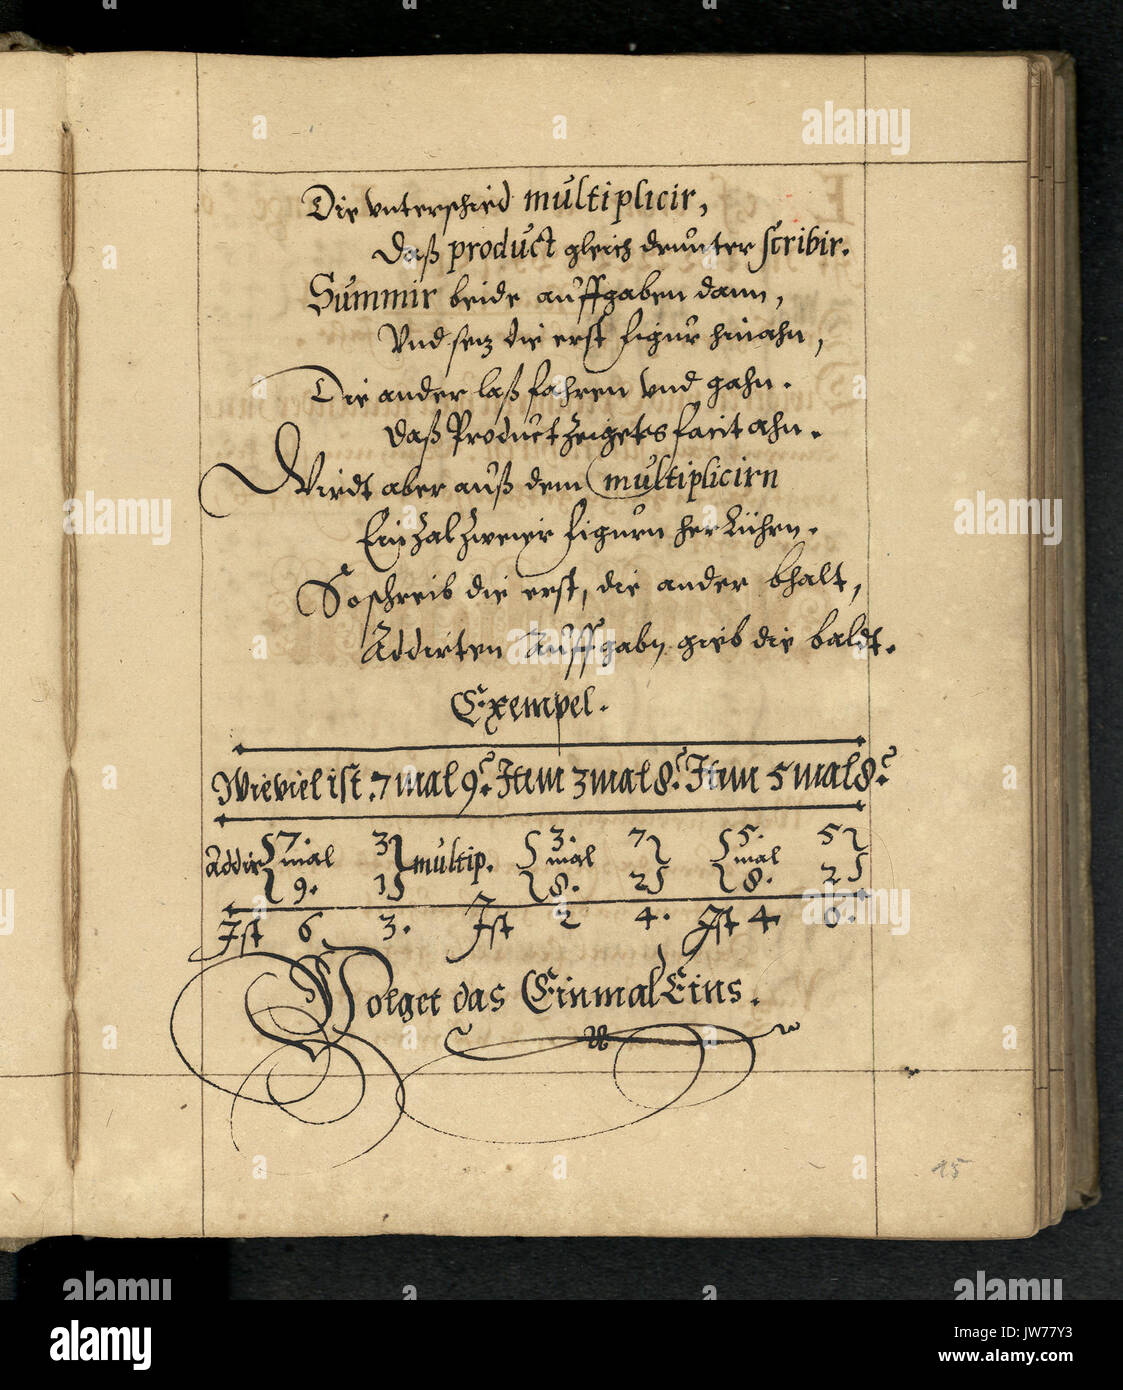 Die vnterschied multiplicir,
Daß product gleich drunter scribir.
Summir beide auffgaben dann,
Vnd setz die erst figur hinahn,
Die ander laß fahren vnd gahn.
Daß Product zeigets facit ahn.
Wirdt aber auß dem multiplicirn
Ein Zal zweyer figurn her rührn.
So schreib die erst, die ander bhalt,
Addirten Auffgabn gieb die baldt.
Exempel.
Wieviel ist 7 mal 9? Item 3 mal 8? Item 5 mal 8?
7. 3 3. 7 5. 5
Addir mal multip. mal mal
9. 1 8. 2 8. 2
Ist 6 3. Ist 2 4. Ist 4 0.
Volget das Einmal Eins.
15
alamy
a
alamy
Image ID: JW77Y3
www.alamy.com